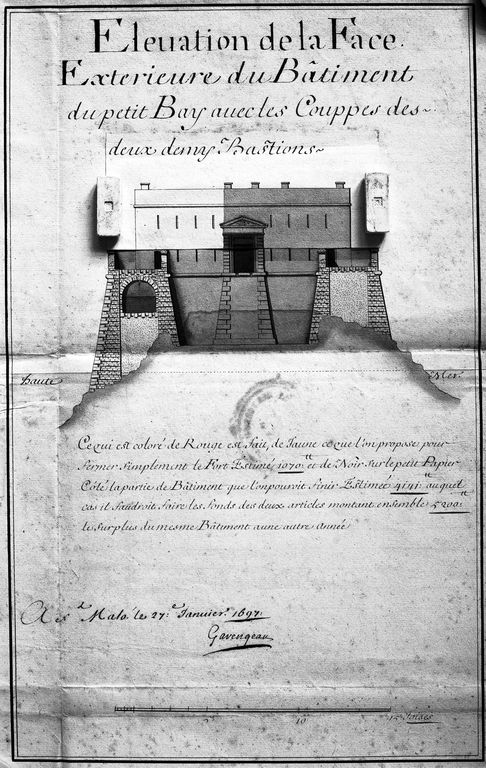 Elevation de la Face
Exterieure du Bâtiment
du petit Bay avec les Couppes des
deux demy Bastions
haute Mer
Ce qui est coloré de Rouge est fait, de Jaune ce que l'on propose pour
fermer simplement le Fort Estimé 1070tt et de Noir sur le petit Papier
Côté la partie de Bâtiment que l'on pouroit finir Estimée 4141 auquel
cas il faudroit faire les fonds des deux articles montant ensemble 5200tt
le surplus du mesme Bâtiment a une autre année
A St Malo le 27e Janvier 1697
Garengeau
5 10 15 Toises